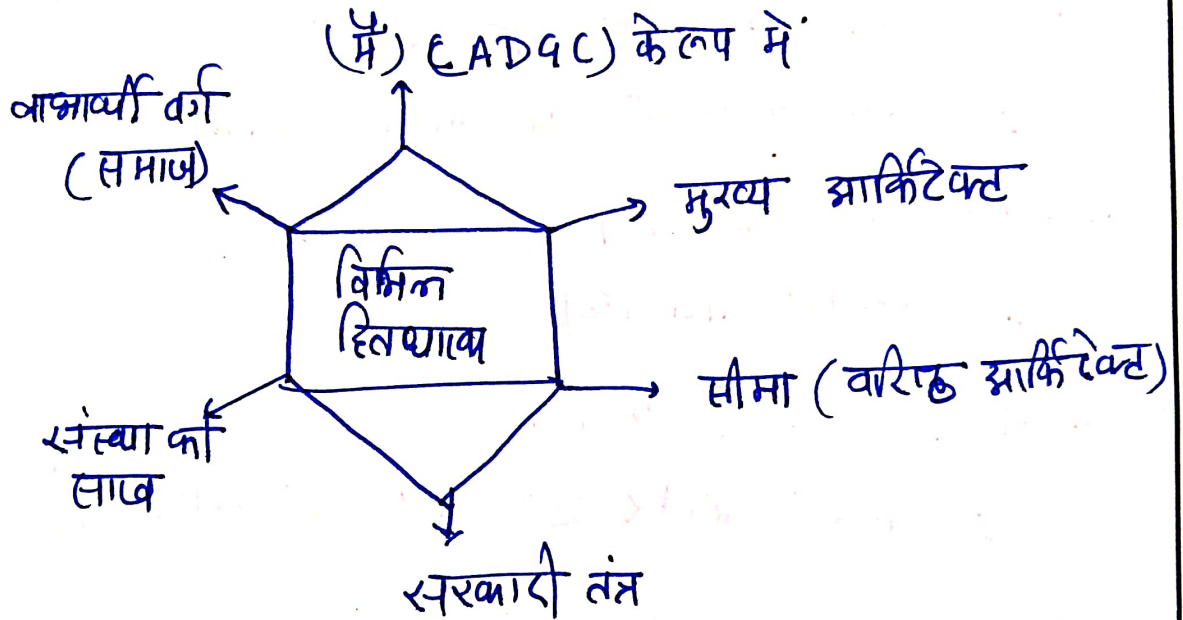 (मैं) (ADGC) के रूप में
लाभार्थी वर्ग
(समाज)
मुख्य आर्किटेक्ट
विभिन्न
हितधारक
सीमा (वरिष्ठ आर्किटेक्ट)
संस्था की
साख
सरकारी तंत्र